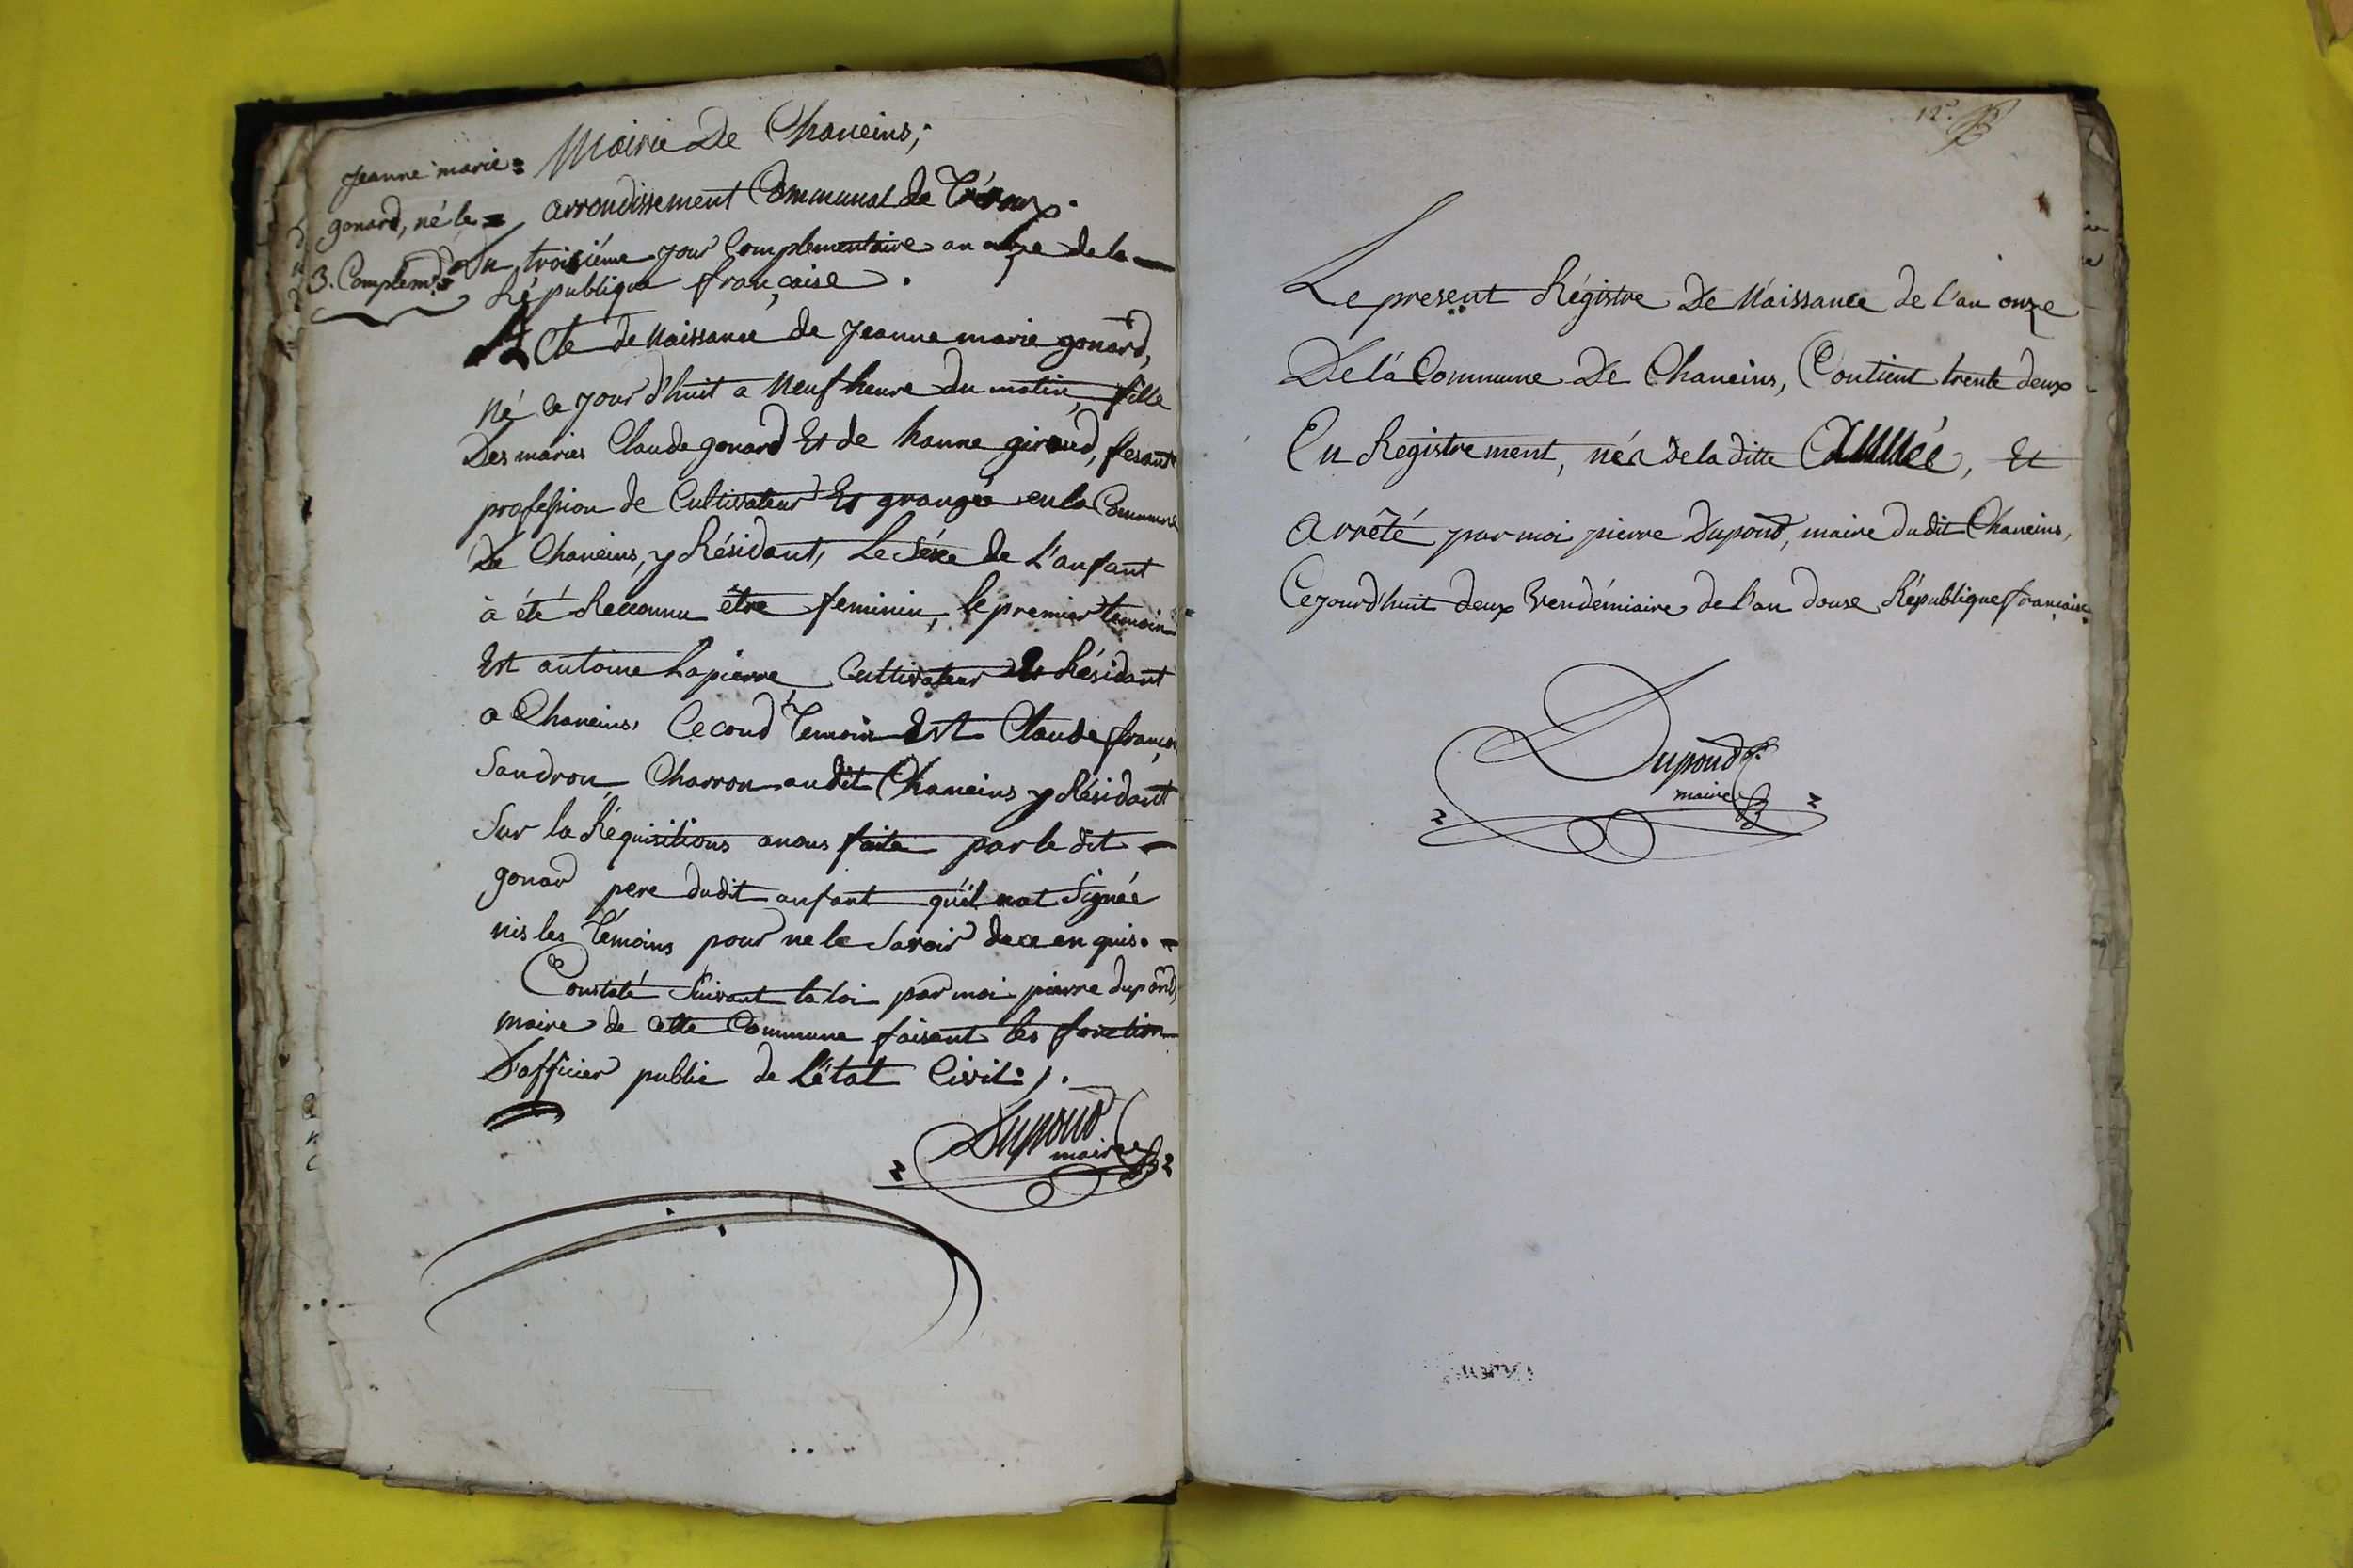 Mairie De Chaneins,
Jeanne marie
gonard, né le
3. Complem.re
arrondissement Communal de Trévoux.
Du troisiéme jour Complementaire an onze de la
République française.
Acte de Naissance de Jeanne marie gonard,
né ce jourd'huit a Neuf heure du matin, fille
Des mariés Claude gonard Et de hanne giraud, fesant
profession de Cultivateur Et granger en la Commune
De Chaneins, y Résidant, Le Séxe de L'anfant
à été Reconnu être feminin, le premier temoin
Est antoine Lapierre Cultivateur Et Résidant
a Chaneins, Cecond Temoin Est Claude françois
Sandron Charron audit Chaneins y Résidant
Sur la Réquisitions anous faite par le dit
gonard pere dudit anfant qu'il nat Signée
nis les Témoins pour ne le Savoir de ce en quis.
Constaté Suivant la loi par moi pierre dupond,
maire de cette Commune faisant les fonction
D'officier public de L'état Civil ;.
Dupond
maire
12.e
Le present Régistre De Naissance de l'an onze
De la Commune De Chaneins, Contient trente deux
En Registrement, nés de la ditte Année, Et
arrêté par moi pierre Dupond, maire dudit Chaneins,
Cejourd'huit deux Vendémiaire de l'an douse République française.
Dupond
maire